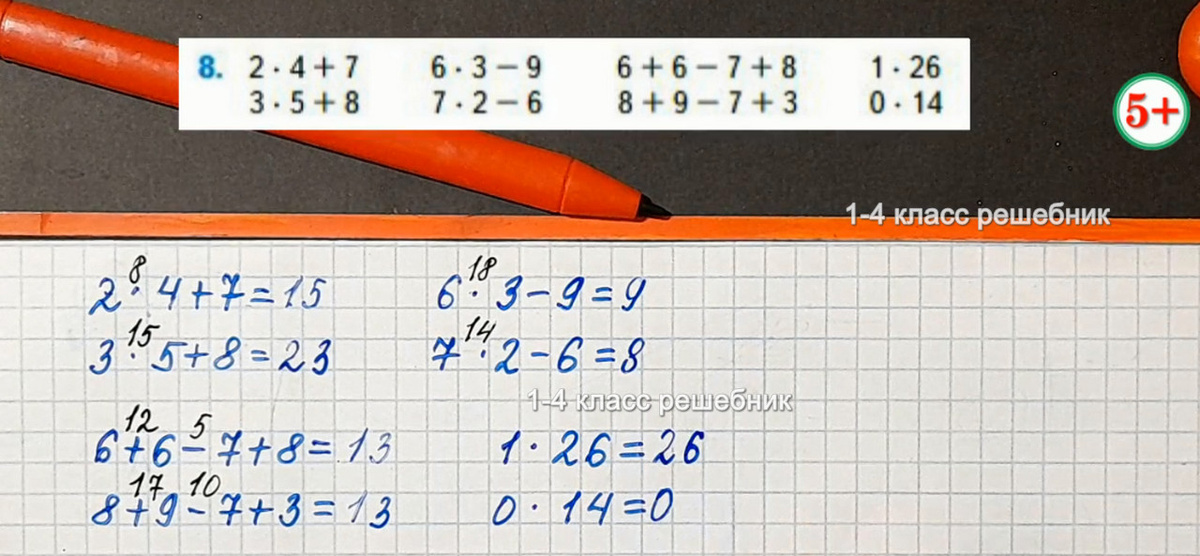 8. 2 · 4 + 7 6 · 3 − 9 6 + 6 − 7 + 8 1 · 26
3 · 5 + 8 7 · 2 − 6 8 + 9 − 7 + 3 0 · 14
5+
1-4 класс решебник
8 18
2 · 4 + 7 = 15 6 · 3 − 9 = 9
15 14
3 · 5 + 8 = 23 7 · 2 − 6 = 8
1-4 класс решебник
12 5
6 + 6 − 7 + 8 = 13 1 · 26 = 26
17 10
8 + 9 − 7 + 3 = 13 0 · 14 = 0